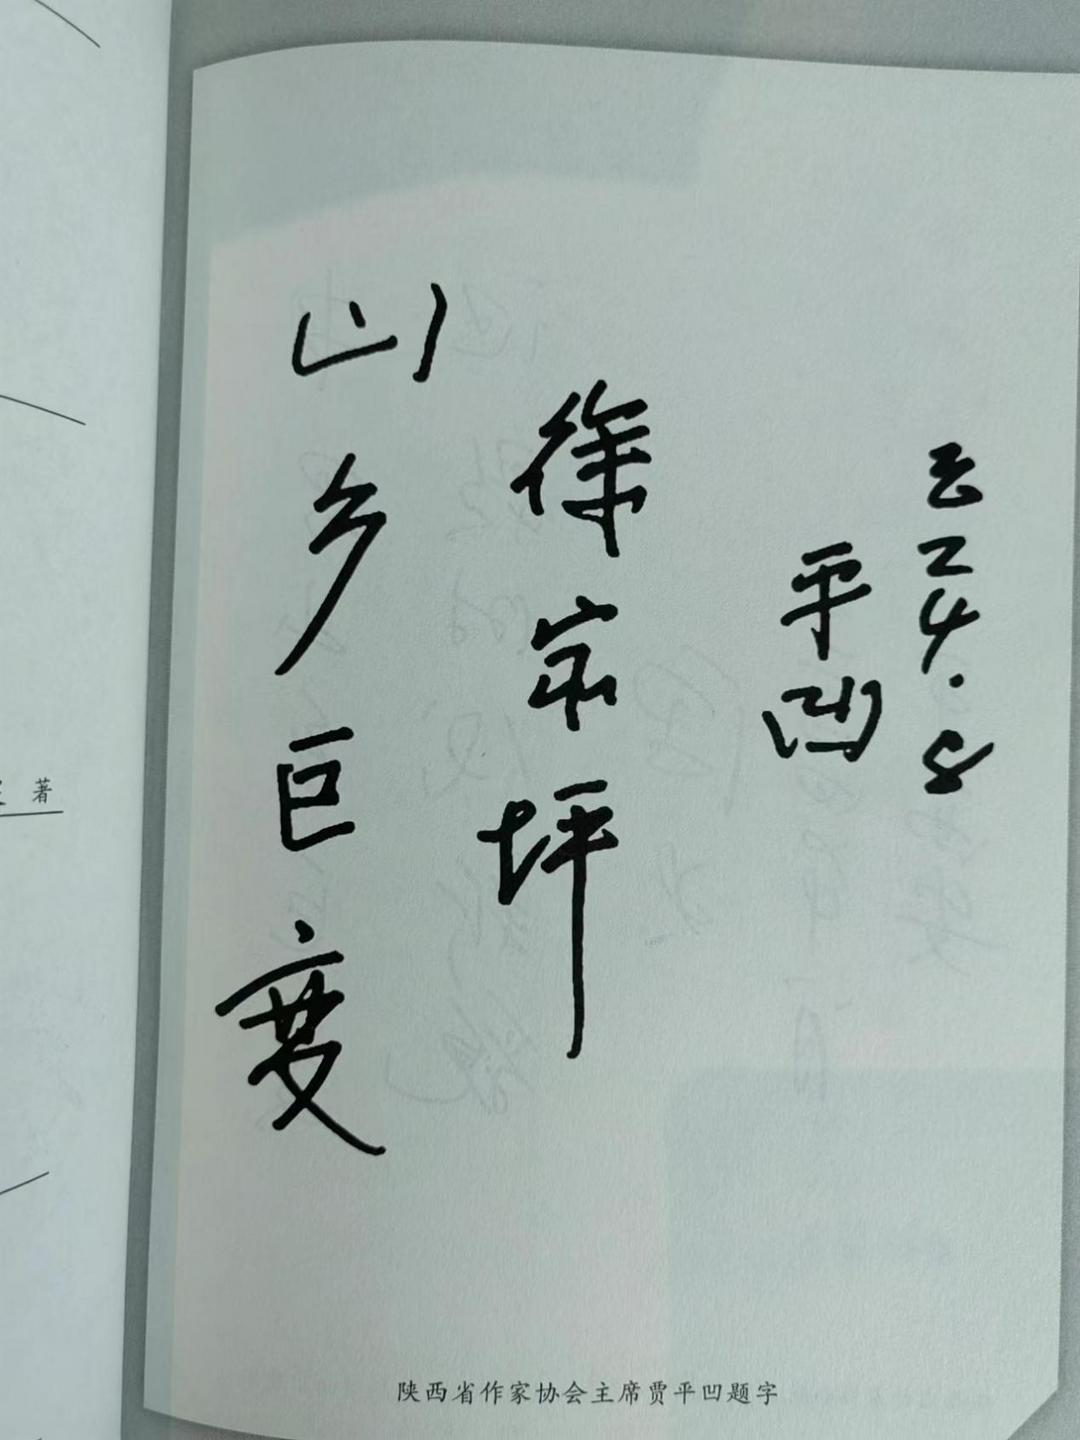 山乡巨变
徐家坪
平凹
2024.8
著
陕西省作家协会主席贾平凹题字